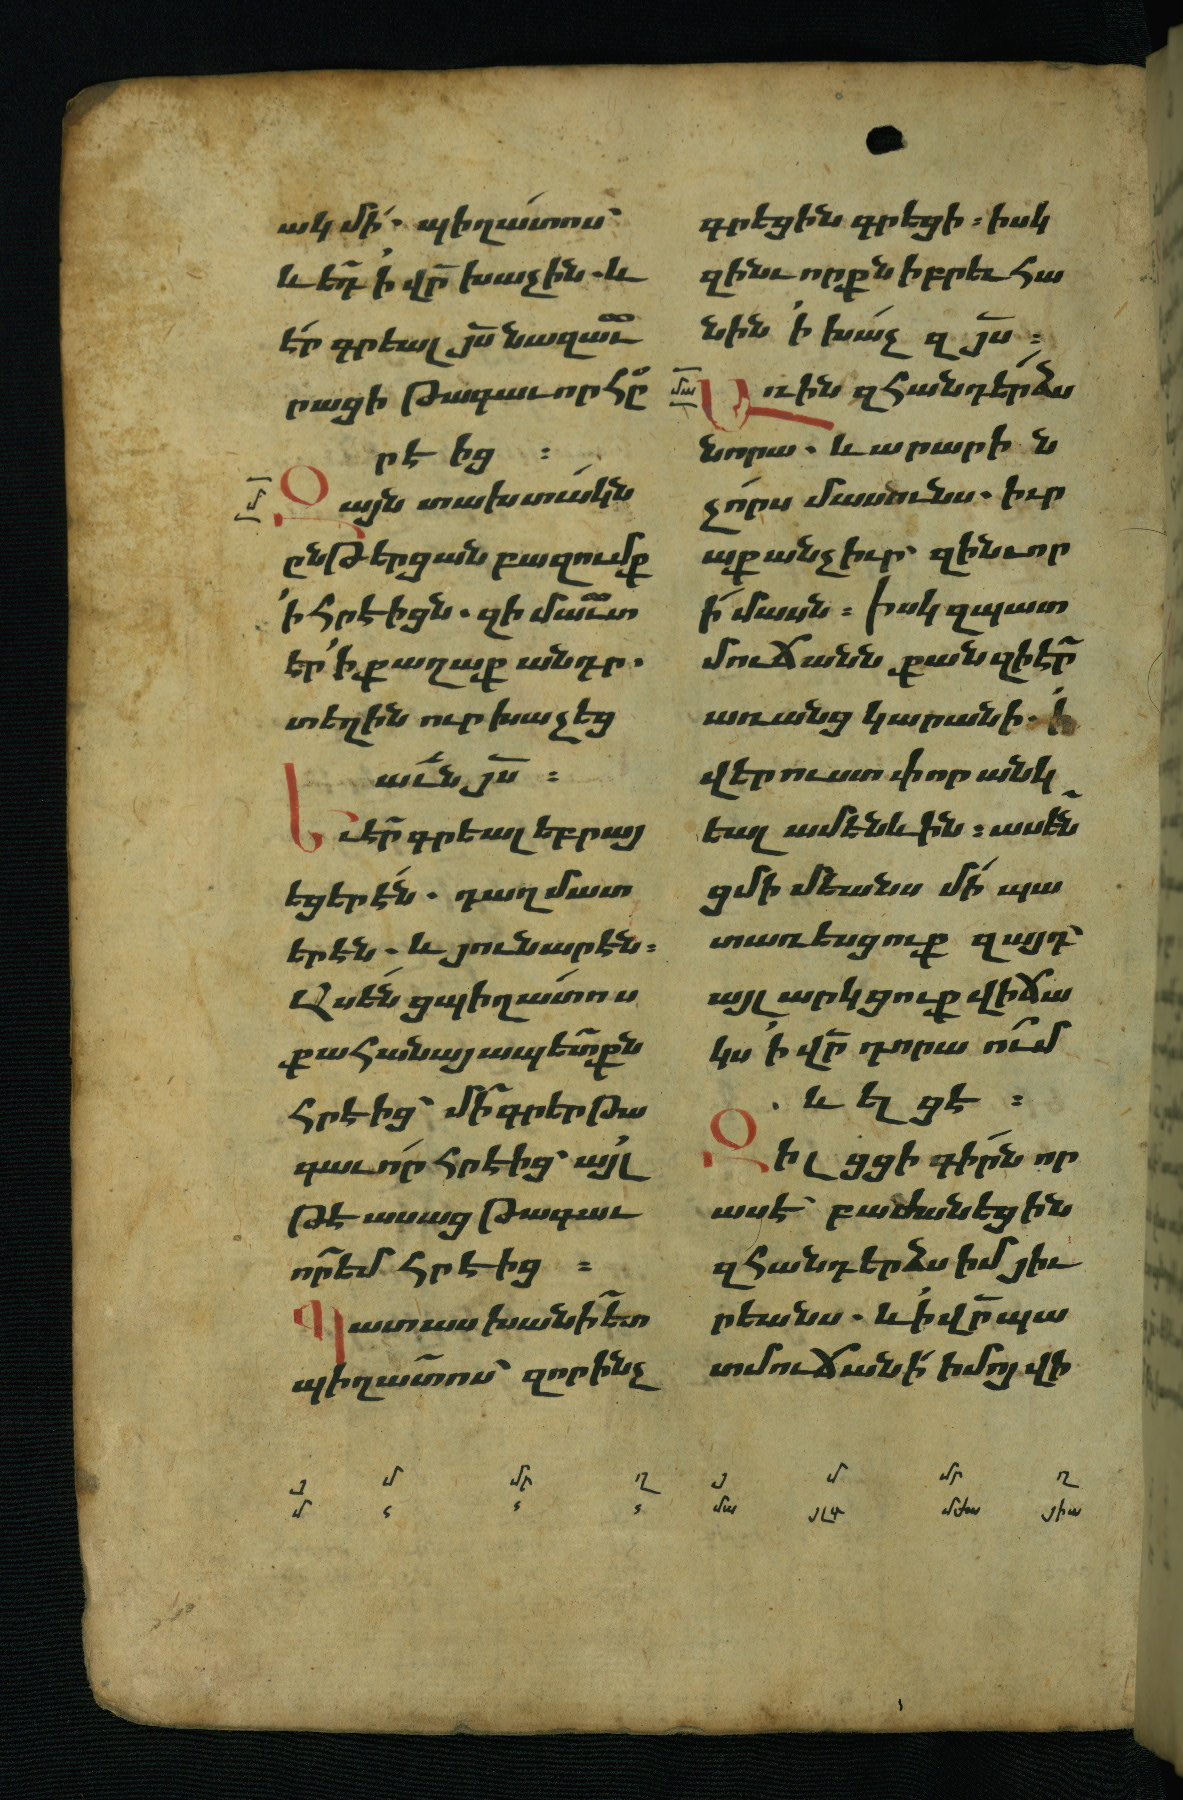 ակ մի՛. պիղա՛տոս՝
և եդ՛ ՛ի վր՛ խաչին. և
է՛ր գրեալ յս՛ նազաւ՛
րացի թագաւոր հր՛
րէ ից :
խ
Զ այն տախտա՛կն
ընթերցան բազումք
՛ի հրէիցն. զի մաւ՛տ
էր ՛ի քաղաք անդր.
տեղին ուր խաչեց
աւ՛ն յս՛ :
Ե ւ էր՛ գրեալ եբրայ
եցերէ՛ն. դաղմատ
երէն. և յունարէն :
Ասէ՛ն ցպիղա՛տոս
քահանայապետ՛քն
հրէից՝ մի՛ գրեր թա
գաւո՛ր հրէից՝ ա՛յլ
թէ ասաց թագաւ
որ՛ եմ հրէից :
Պ ատասխանի ետ՛
պիղա՛տոս՝ զորինչ
գրեցին գրեցի : իսկ
զինւորքն իբրեւ հա
նին ՛ի խա՛չ զ յս՛ :
մա
Ա ռին զհանդե՛րձս
նորա. և արարի ն
չո՛րս մասունս. իւր
աքանչիւր՝ զինւոր
ի՛ մասն : իսկ զպատ
մուճանն քանզի էր՛
առանց կարանի. ՛ի
վերուստ փորանկ
եալ ամենևին : ասե՛ն
ցմիմեանս մի՛ պա
տառեսցուք զայդ՝
այլ արկցուք վիճա
կս ՛ի վր՛ դորա ու՛մ
. և ելցէ :
Զ ի լցցի գի՛րն որ
ասէ՝ բաժանեցին
զհանդերձս իմ յիւ
րեանս. և ՛ի վր՛ պա
տմուճանի՛ իմոյ վի
յ մ մր ղ յ մ մր ղ